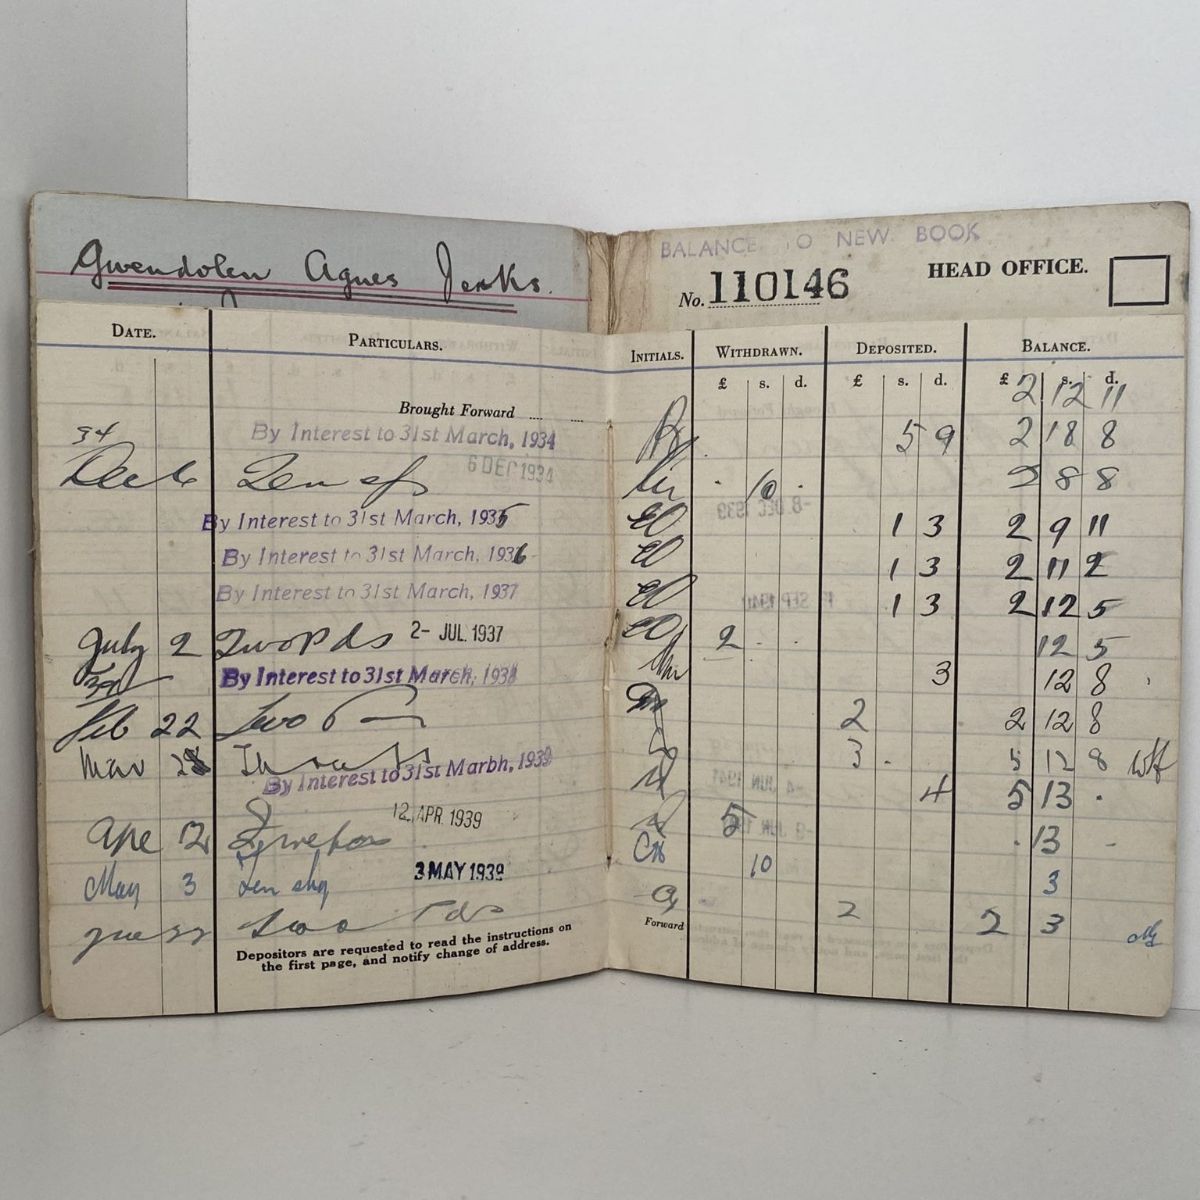 Gwendolen Agnes Jenks.
BALANCE TO NEW BOOK
No. 110146 HEAD OFFICE.
DATE. PARTICULARS. INITIALS. WITHDRAWN. DEPOSITED. BALANCE.
£ s. d. £ s. d. £ s. d.
Brought Forward .... 2 12 11
34 By Interest to 31st March, 1934 5 9 2 18 8
Dec 6 Ten 6 DEC 1934 10 . 2 8 8
By Interest to 31st March, 1935 1 3 2 9 11
By Interest to 31st March, 1936 1 3 2 11 2
By Interest to 31st March, 1937 1 3 2 12 5
July 2 Two Pds 2- JUL 1937 2 . . 12 5
By Interest to 31st March, 1938 3 12 8
Feb 22 Two 2 2 12 8
Mar 28 3 . 5 12 8
By Interest to 31st Marbh, 1939 4 5 13 .
12 APR 1939
Ape 12 5 13 -
May 3 Ten shg 3 MAY 1939 10 3
Two Pds 2 2 3
Forward
Depositors are requested to read the instructions on
the first page, and notify change of address.